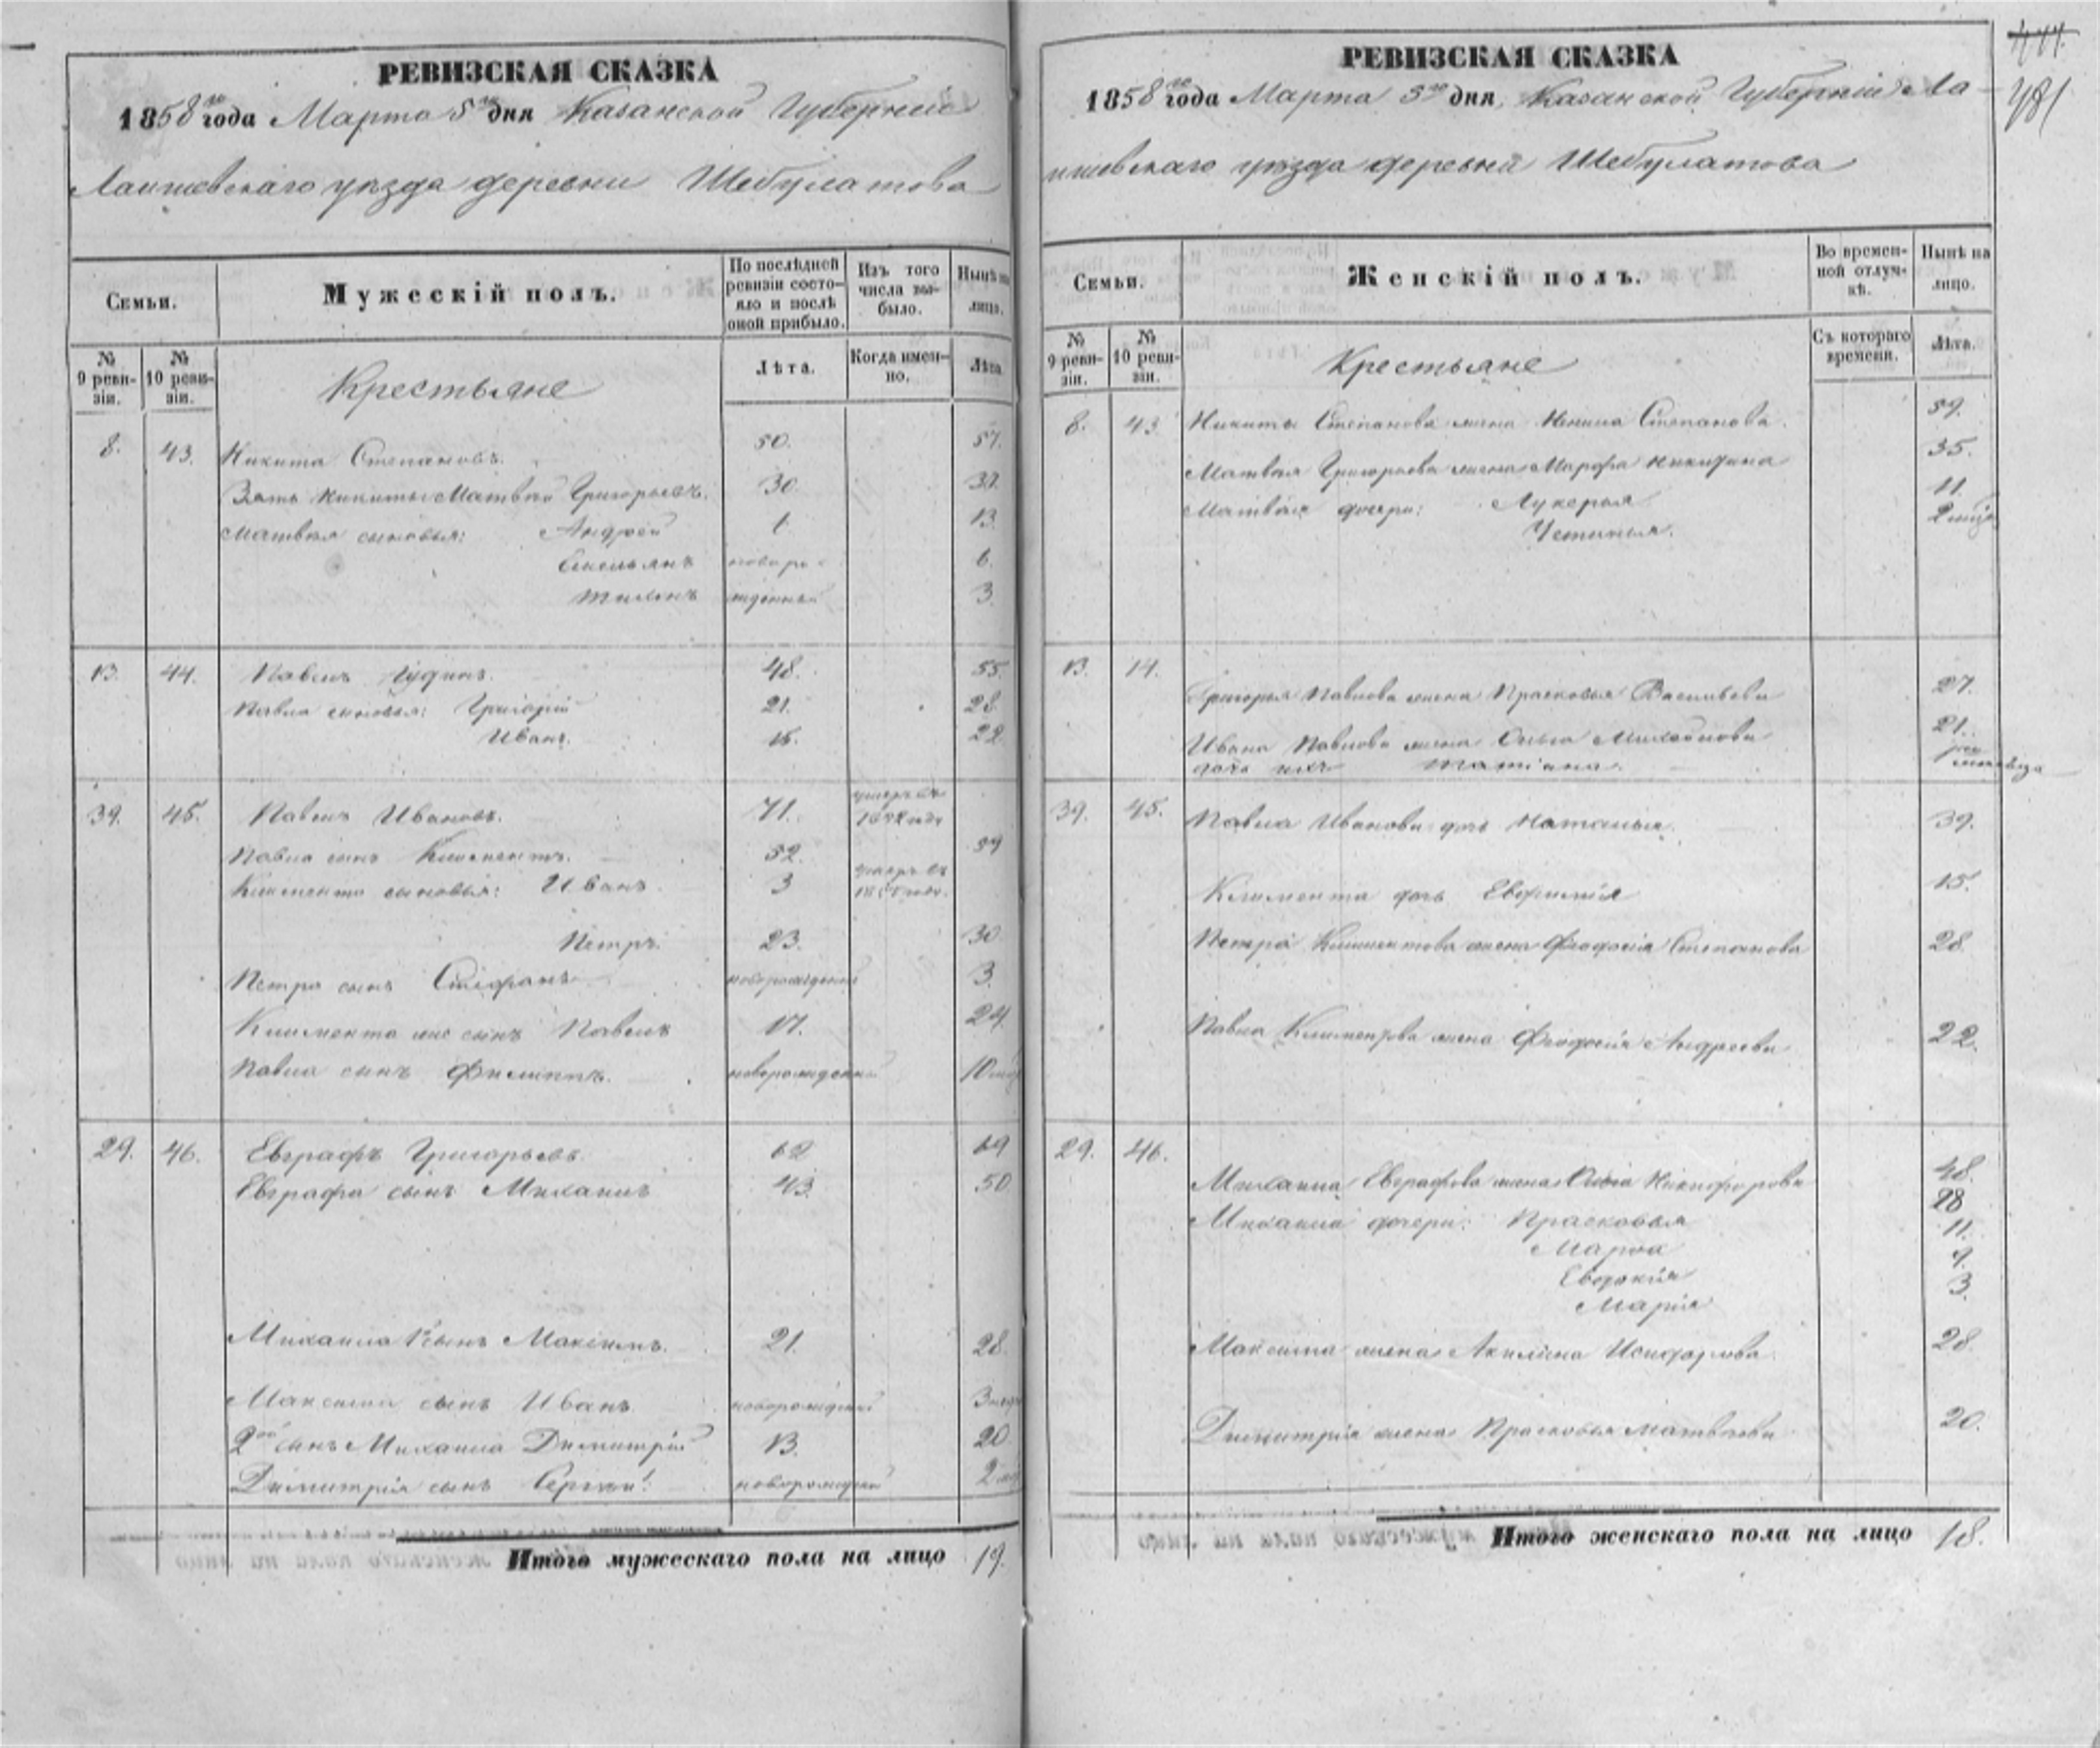 РЕВИЗСКАЯ СКАЗКА
1858го года Марта 5го дня Казанской Губернии
Лаишевскаго уезда деревни Шебулатова
Семьи.
Мужескій полъ.
По послѣдней ревизіи состояло и послѣ оной прибыло.
Изъ того числа выбыло.
Нынѣ на лицо.
№ 9 ревизіи.
№ 10 ревизіи.
Крестьяне
Лѣта.
Когда именно.
Лѣта.
8. 43. Никита Степановъ. 50. 57.
Зять Никиты Матвей Григорьевъ. 30. 37.
Матвея сыновья: Андрей 1.
новоро- 6.
жденный 3.
13. 44. Павелъ 48. 55.
Павла сыновья: Григорій 21. 28.
Иванъ. 15. 22
39. 45. Павелъ Ивановъ. 71.
Павла сынъ Климентъ. 52. 59
Климента сыновья: Иванъ 3
Петръ. 23. 30
Петра сынъ Стефанъ новорожденный 3.
Климента же сынъ Павелъ 17. 24
Павла сынъ Филиппъ. новорожденный 10
29. 46. Евграфъ Григорьевъ 62 69
Евграфа сынъ Михаилъ 43. 50
Михаила сынъ Максимъ. 21. 28.
Максима сынъ Иванъ новорожденный 3
2ой сынъ Михаила Димитрій 13. 20
Димитрія сынъ Сергей новорожденный 2
Итого мужескаго пола на лицо 19.
РЕВИЗСКАЯ СКАЗКА
1858го года Марта 5го дня, Казанской Губерніи Ла-
ишевскаго уезда деревни Шебулатова
481
Семьи.
Женскій полъ.
Во временной отлучкѣ.
Нынѣ на лицо.
№ 9 ревизіи.
№ 10 ревизіи.
Крестьяне
Съ котораго времени.
Лѣта.
8. 43. Никиты Степанова жена Степанова. 59.
Матвея Григорьева жена Марфа Никитина 35.
Матвея дочери: Лукерья 11.
Устинья. 2
13. 44. Григорья Павлова жена Прасковья Васильева 27.
Ивана Павлова жена 21.
дочь ихъ Татіана.
39. 45. Павла Иванова дочь Наталья. 39.
Климента дочь Евфимія 15.
Петра Климентова жена Феодосія Степанова 28
Павла Климентова жена Феодосія Андреева 22.
29. 46. Михаила Евграфова жена Никифорова 48.
Михаила дочери: Прасковья 18
Марфа 11.
Евдокія 9.
Марія 3.
Максима жена Акилина 28.
Димитрія жена Прасковья Матвеева 20.
Итого женскаго пола на лицо 18.